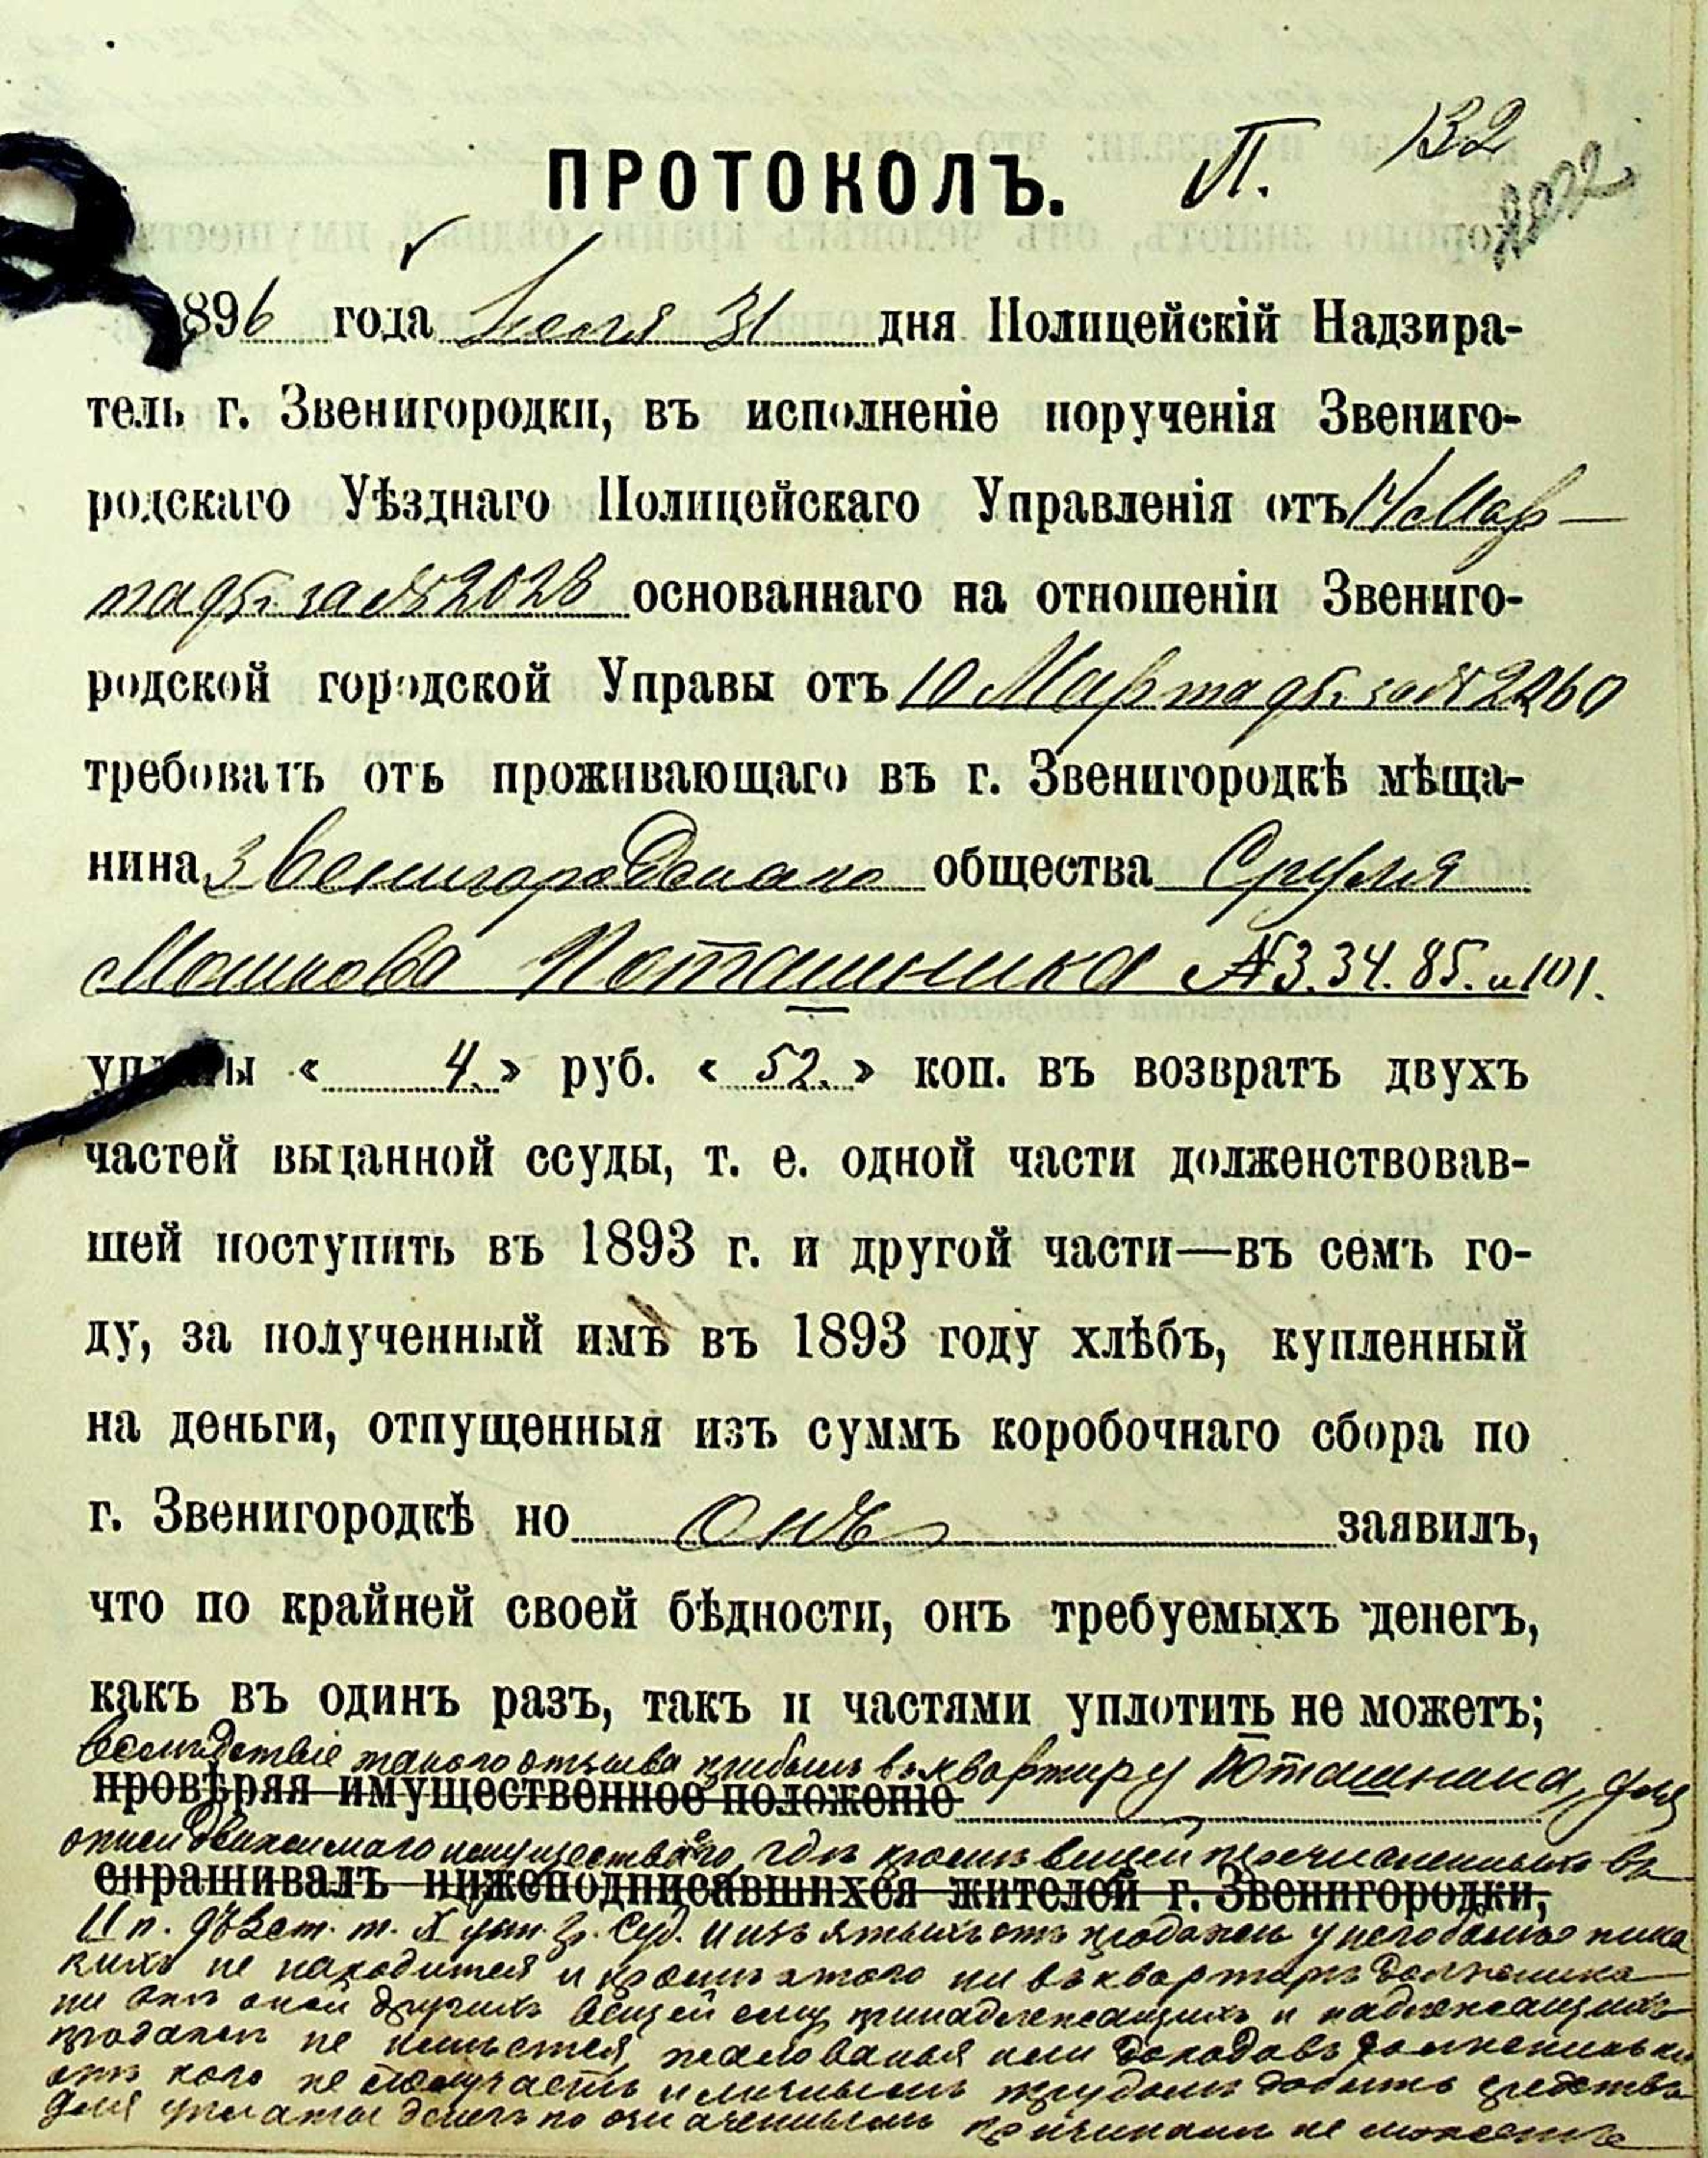 ПРОТОКОЛЪ. П. 132
896 года Іюля 31 дня Полицейскій Надзира-
тель г. Звенигородки, въ исполненіе порученія Звениго-
родскаго Уѣзднаго Полицейскаго Управленія отъ 14 Мар-
та 95 г. за № 2028 основаннаго на отношеніи Звениго-
родской городской Управы отъ 10 Марта 95 г. за №
требовать отъ проживающаго въ г. Звенигородкѣ мѣща-
нина Звенигородскаго общества Сруля
Мошкова Поташника № 3. 34. 85. и 101.
уплаты « 4. » руб. « 52. » коп. въ возвратъ двухъ
частей выданной ссуды, т. е. одной части долженствовав-
шей поступить въ 1893 г. и другой части—въ семъ го-
ду, за полученный имъ въ 1893 году хлѣбъ, купленный
на деньги, отпущенныя изъ суммъ коробочнаго сбора по
г. Звенигородкѣ но онъ заявилъ,
что по крайней своей бѣдности, онъ требуемыхъ денегъ,
какъ въ одинъ разъ, такъ и частями уплотить не можетъ;
вслѣдствіе такого отзыва прибылъ въ квартиру Поташника, для
провѣряя имущественное положеніе
описи движимаго имущества его, гдѣ кромѣ вещей перечисленныхъ въ
спрашивалъ нижеподписавшихся жителей г. Звенигородки,
II п. 973 ст. т. X уст. гр. суд. и изъятыхъ отъ продажи у него больше ника
кихъ не находится и кромѣ этого ни въ квартирѣ должника
ни внѣ оной другихъ вещей ему принадлежащихъ и надлежащихъ
продажѣ не имѣется, жалованья или доходовъ должникъ ни
отъ кого не получаетъ и личнымъ трудомъ добыть средства
для уплаты денегъ по означеннымъ причинамъ не можетъ